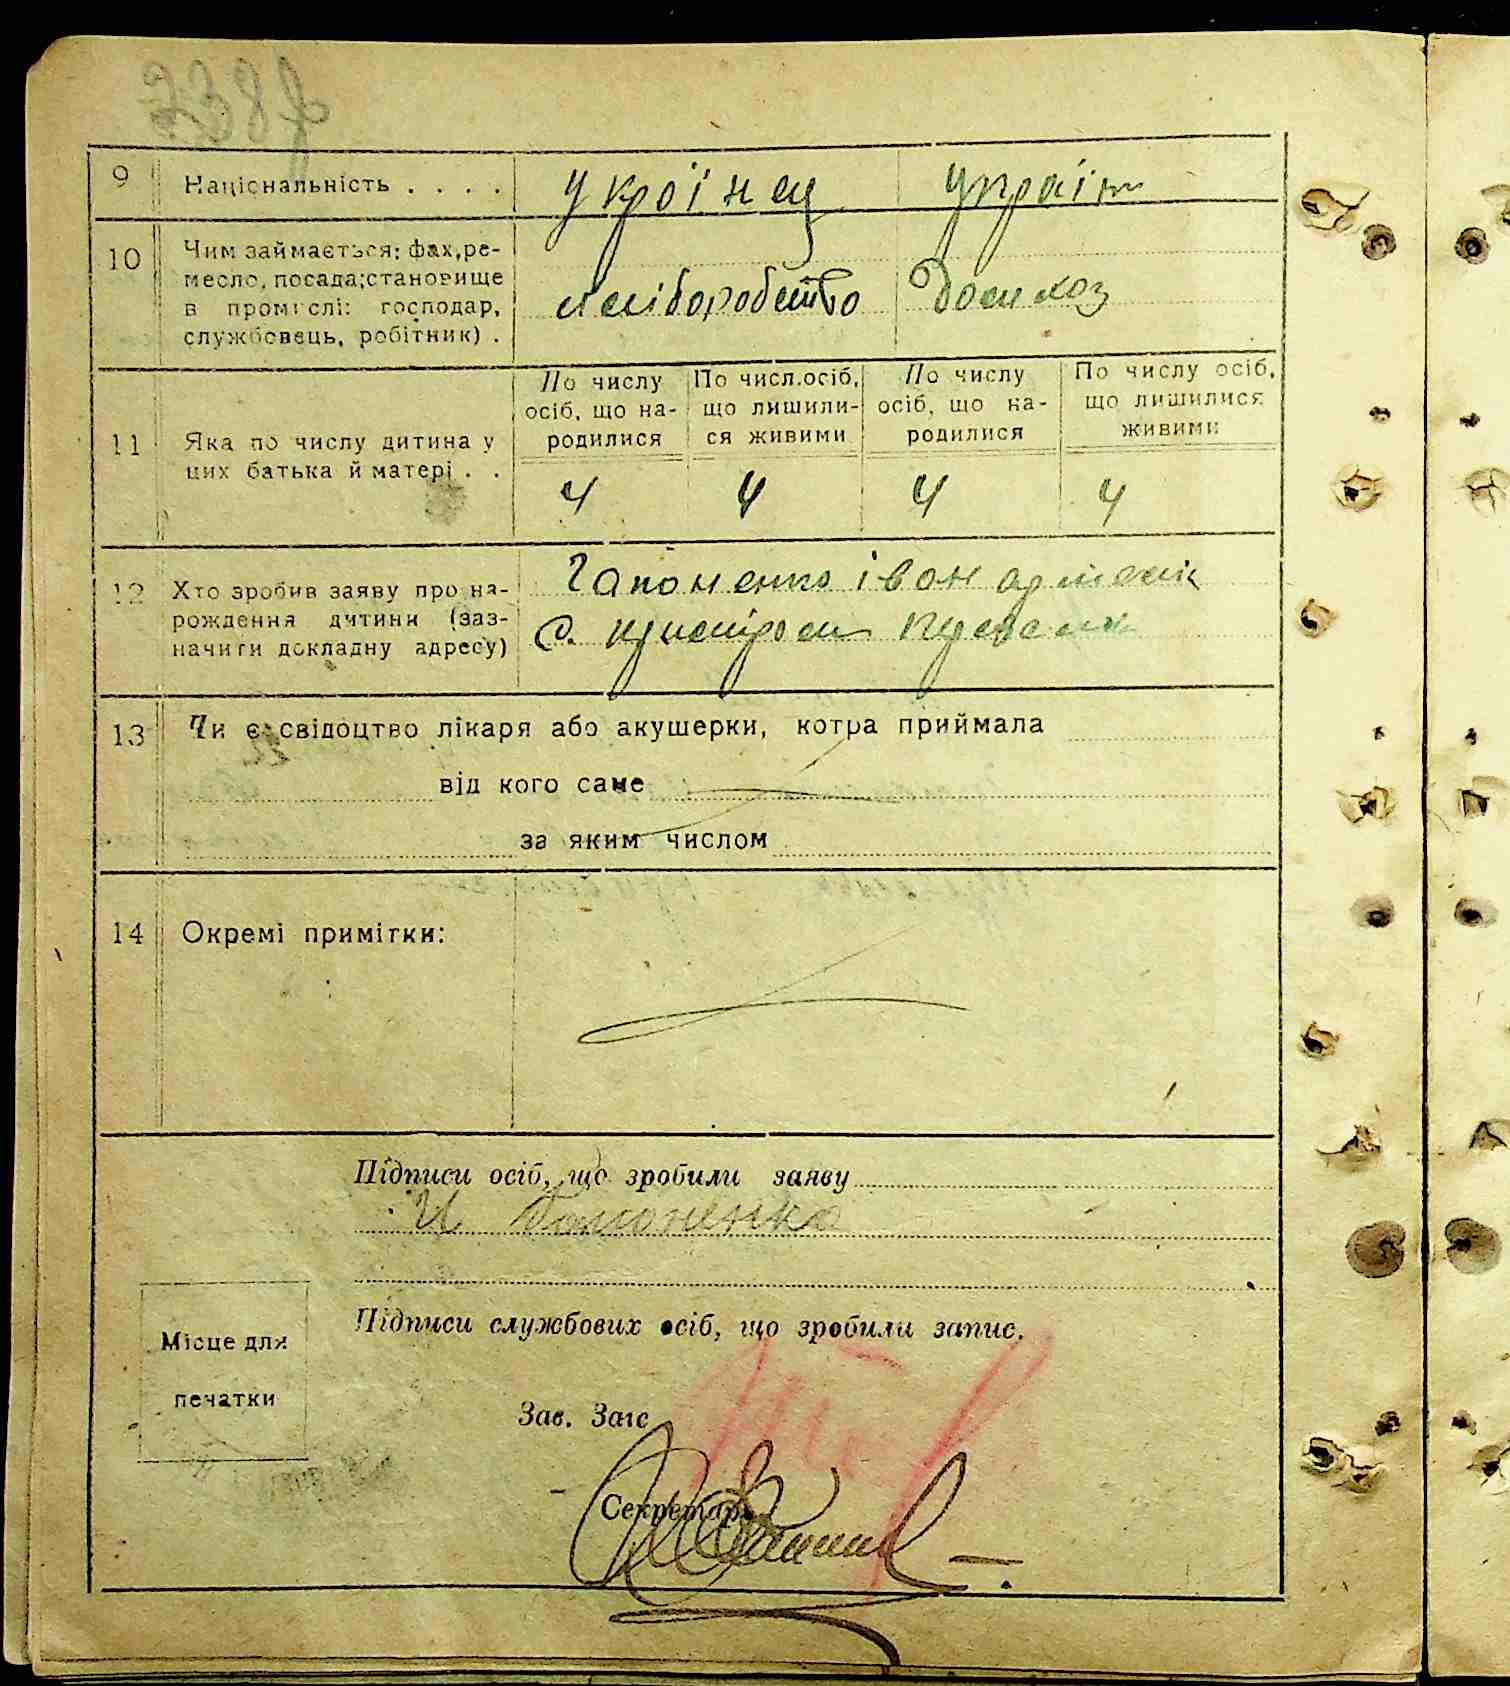 9 Національність . . . . українец україн
10 Чим займається: фах, ре-
месло, посада; становище
в промислі: господар,
службовець, робітник) .
хліборобство дом хоз
По числу осіб, що на-родилися
По числ. осіб, що лишили-ся живими
По числу осіб, що на-родилися
По числу осіб, що лишилися живими
11 Яка по числу дитина у
цих батька й матері . .
4 4 4 4
12 Хто зробив заяву про на-
рождення дитини (заз-
начити докладну адресу)
Гапоненко іван
с.
13 Чи є свідоцтво лікаря або акушерки, котра приймала
від кого саме
за яким числом
14 Окремі примітки:
Підписи осіб, що зробили заяву
И Гапоненко
Підписи службових осіб, що зробили запис.
Місце для
печатки
Зав. Загс
Секретар